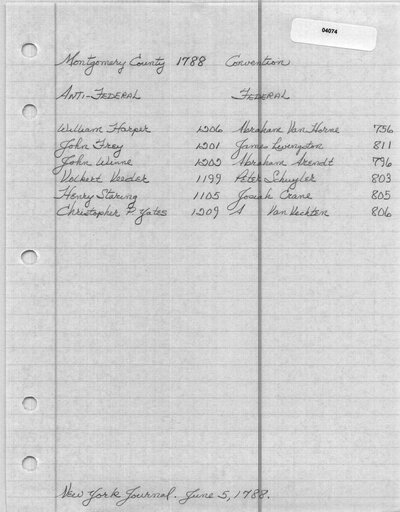 04074
Montgomery County 1788 Convention
Anti-Federal Federal
William Harper 1206 Abraham Van Horne 756
John Frey 1201 James Livingston 811
John Winne 1202 Abraham Arendt 796
Volkert Veeder 1199 Peter Schuyler 803
Henry Staring 1105 Josiah Crane 805
Christopher P. Yates 1209 A Van Vechten 806
New York Journal. June 5, 1788.